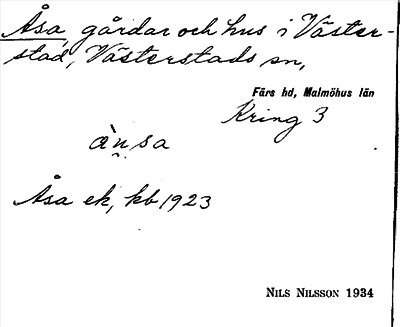 Åsa, gårdar och hus i Väster-
stad, Västerstads sn,
Färs hd, Malmöhus län
Kring 3
ȧ̀n̯sa
Åsa ek, kb 1923
NILS NILSSON 1934